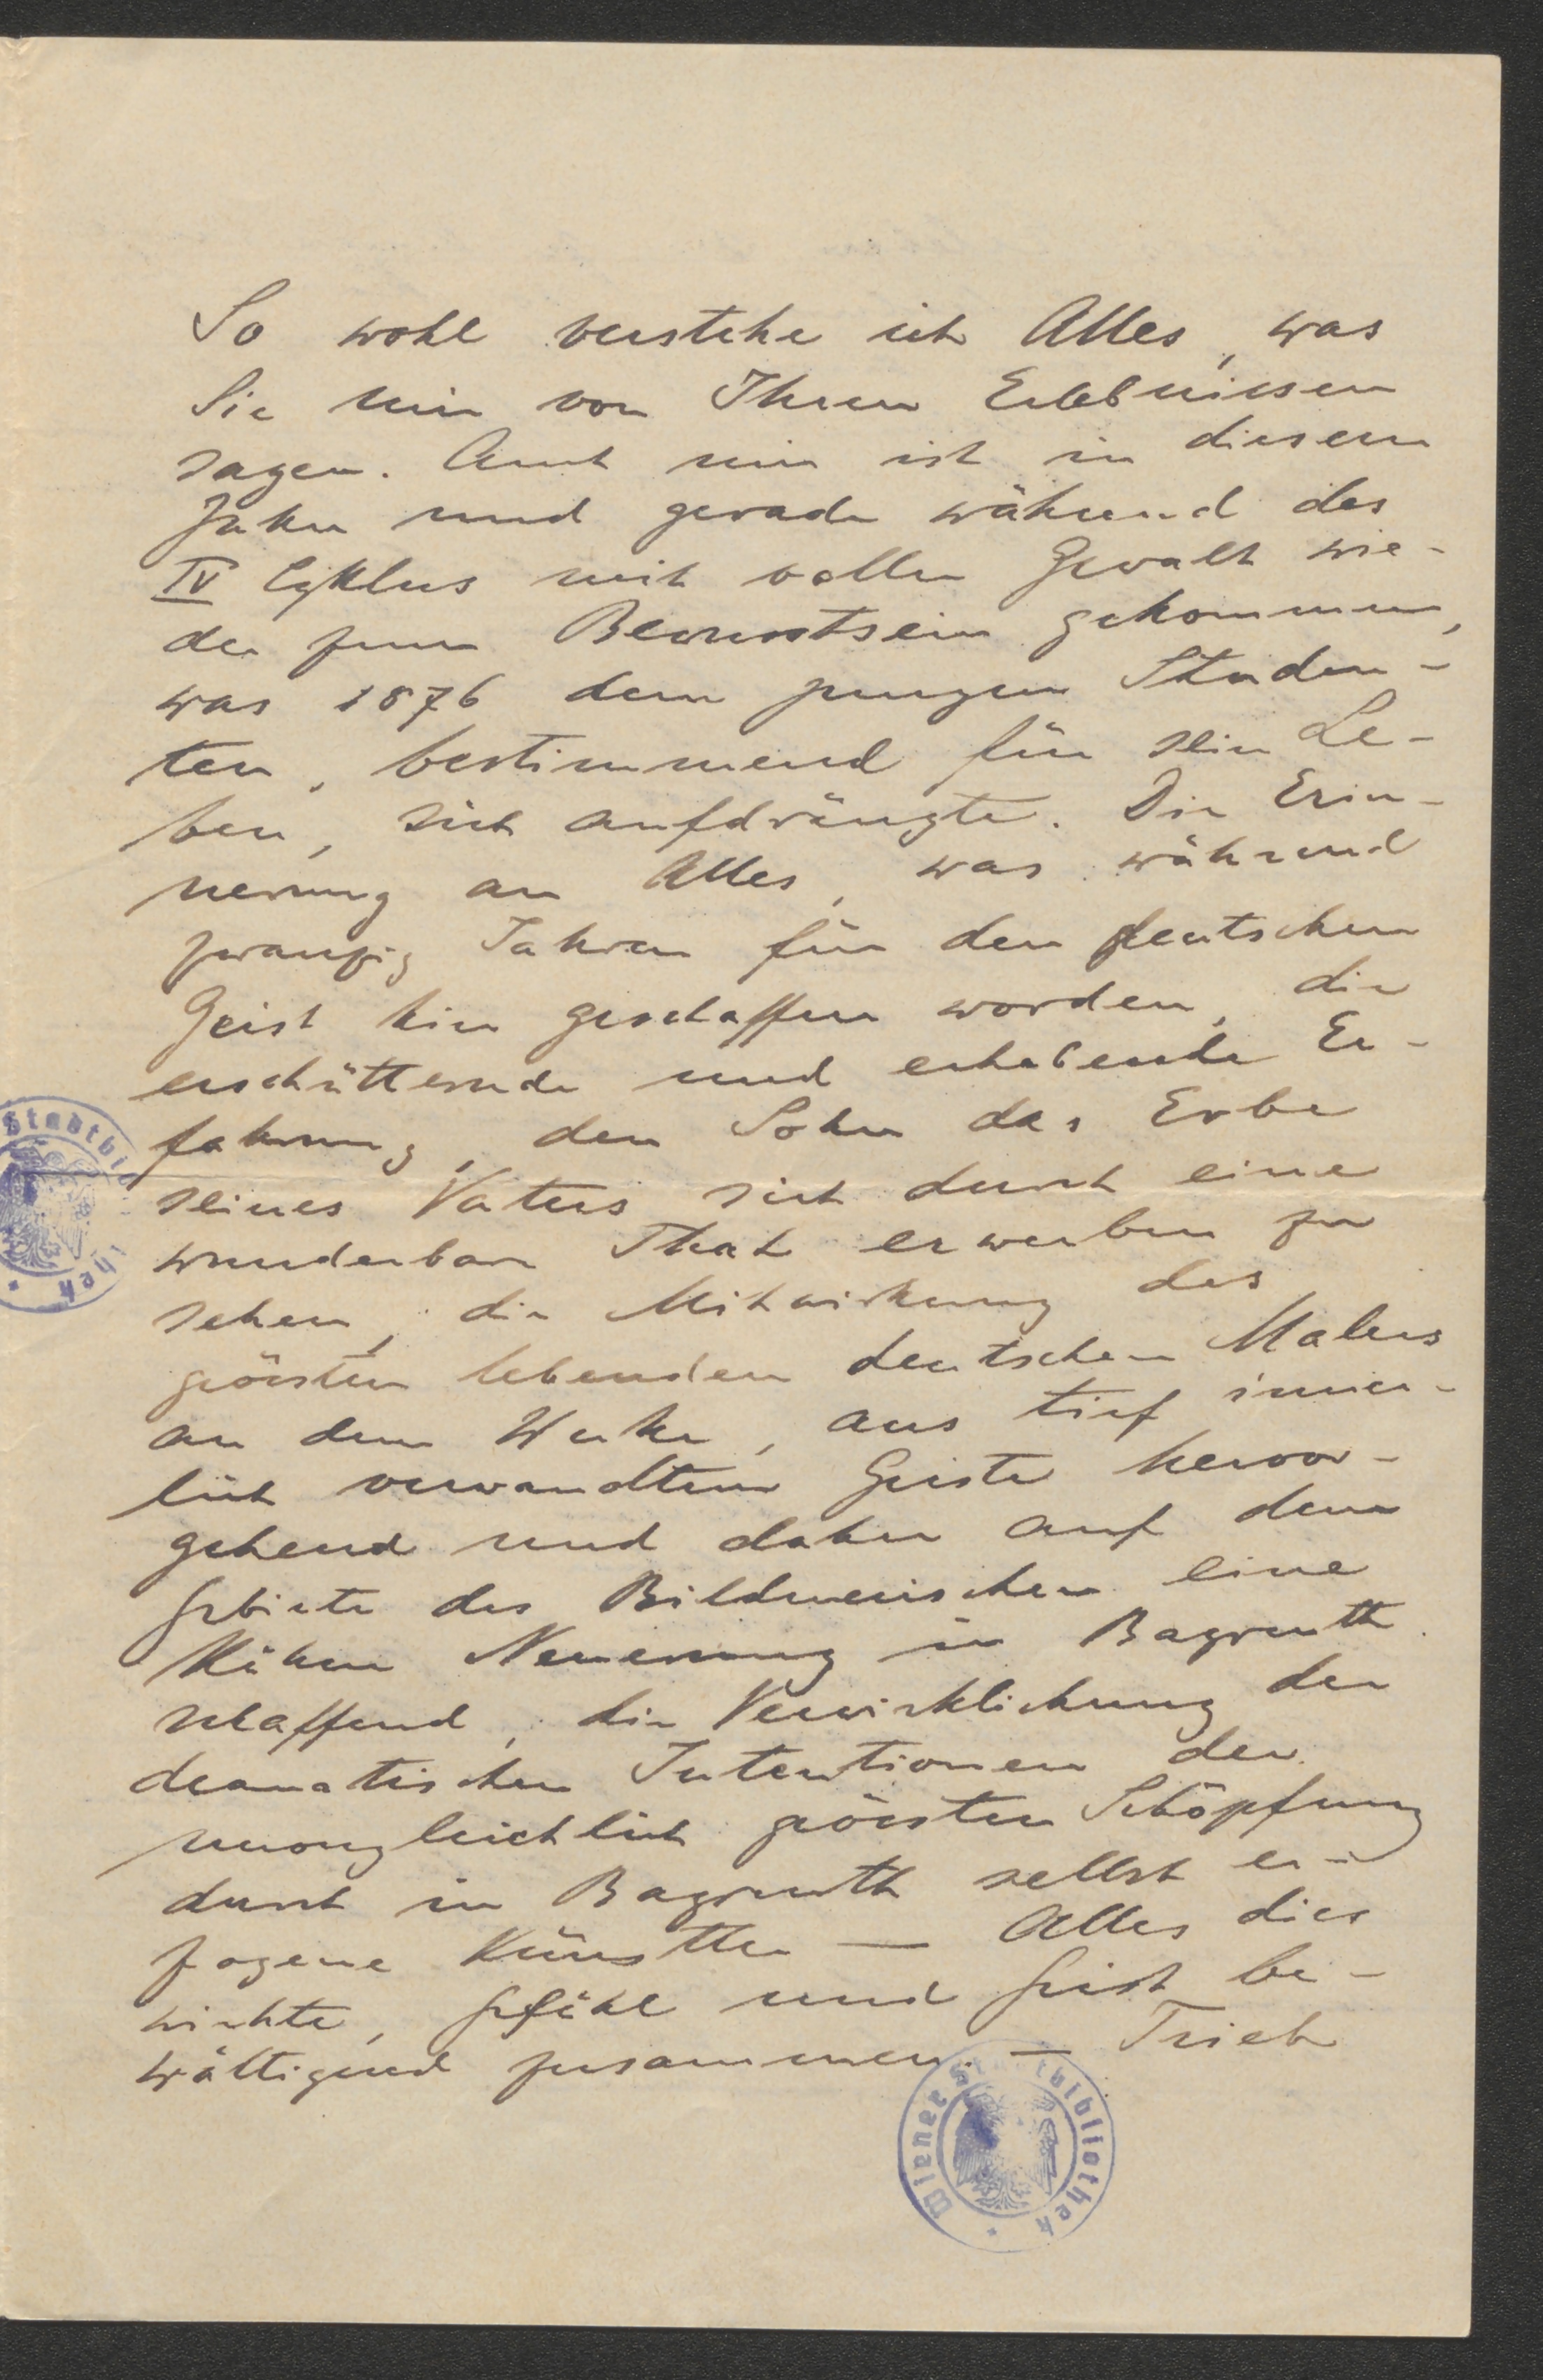 So wohl verstehe ich Alles, was
Sie mir von Ihren Erlebnissen
sagen. Auch mir ist in diesem
Jahre und gerade während des
IV Cyklus mit voller Gewalt wie-
der zum Bewusstsein gekommen,
was 1876 dem jungen Studen-
ten, bestimmend für sein Le-
ben, sich aufdrängte. Die Erin-
nerung an Alles, was während
zwanzig Jahren für den deutschen
Geist hier geschaffen worden, die
erschütternde und erhebende Er-
fahrung, den Sohn das Erbe
seines Vaters sich durch eine
wunderbare That erwerben zu
sehen, die Mitwirkung des
grössten lebenden deutschen Malers
an dem Werke, aus tief inner-
lich verwandtem Geiste hervor-
gehend und daher auf dem
Gebiete des Bildnerischen eine
kühne Neuerung in Bayreuth
schaffend, die Verwirklichung der
dramatischen Intentionen der
unvergleichlich grössten Schöpfung
durch in Bayreuth selbst er-
zogene Künstler — Alles dies
wirkte, Gefühl und Geist be-
wältigend zusammen. — Trieb
Stadtbi
hek
Wiener Stadtbibliothek